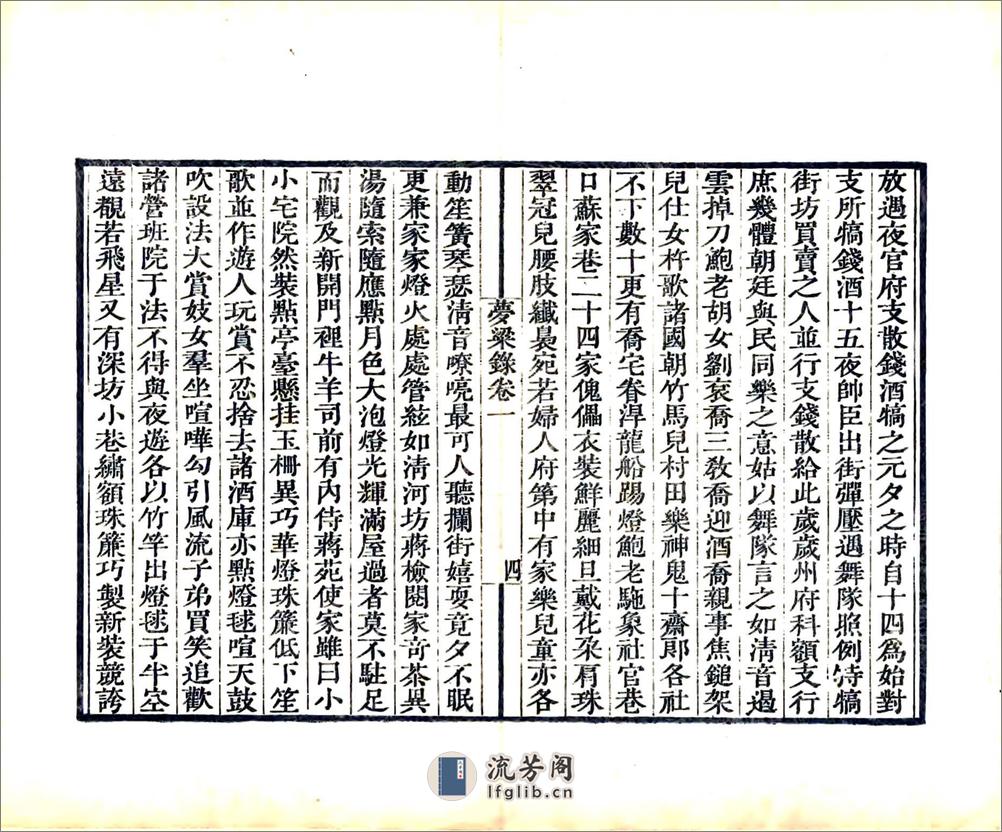 放過夜官府支散錢酒犒之元夕之時自十四爲始對
支所犒錢酒十五夜帥臣出街彈壓遇舞隊照例特犒
街坊買賣之人並行支錢散給此歲歲州府科額支行
庶幾體朝廷與民同樂之意姑以舞隊言之如淸音遏
雲掉刀鮑老胡女劉衮喬三敎喬迎酒喬親事焦鎚架
兒仕女杵歌諸國朝竹馬兒村田樂神鬼十齋郎各社
不下數十更有喬宅眷渾龍船踢燈鮑老駞象社官巷
口蘇家巷二十四家傀儡衣裝鮮麗細旦戴花朶肩珠
翠冠兒腰肢纖裊宛若婦人府第中有家樂兒童亦各
夢粱錄卷一
四
動笙簧琴瑟淸音嘹喨最可人聽攔街嬉耍竟夕不眠
更兼家家燈火處處管絃如淸河坊蔣檢閱家奇茶異
湯隨索隨應點月色大泡燈光輝滿屋過者莫不駐足
而觀及新開門裡牛羊司前有內侍蔣苑使家雖曰小
小宅院然裝點亭臺懸挂玉柵異巧華燈珠簾低下笙
歌並作遊人玩賞不忍捨去諸酒庫亦點燈毬喧天鼓
吹設法大賞妓女羣坐喧嘩勾引風流子弟買笑追歡
諸營班院于法不得與夜遊各以竹竿出燈毬于半空
遠覩若飛星又有深坊小巷繡額珠簾巧製新裝競誇
流芳阁
lfglib.cn